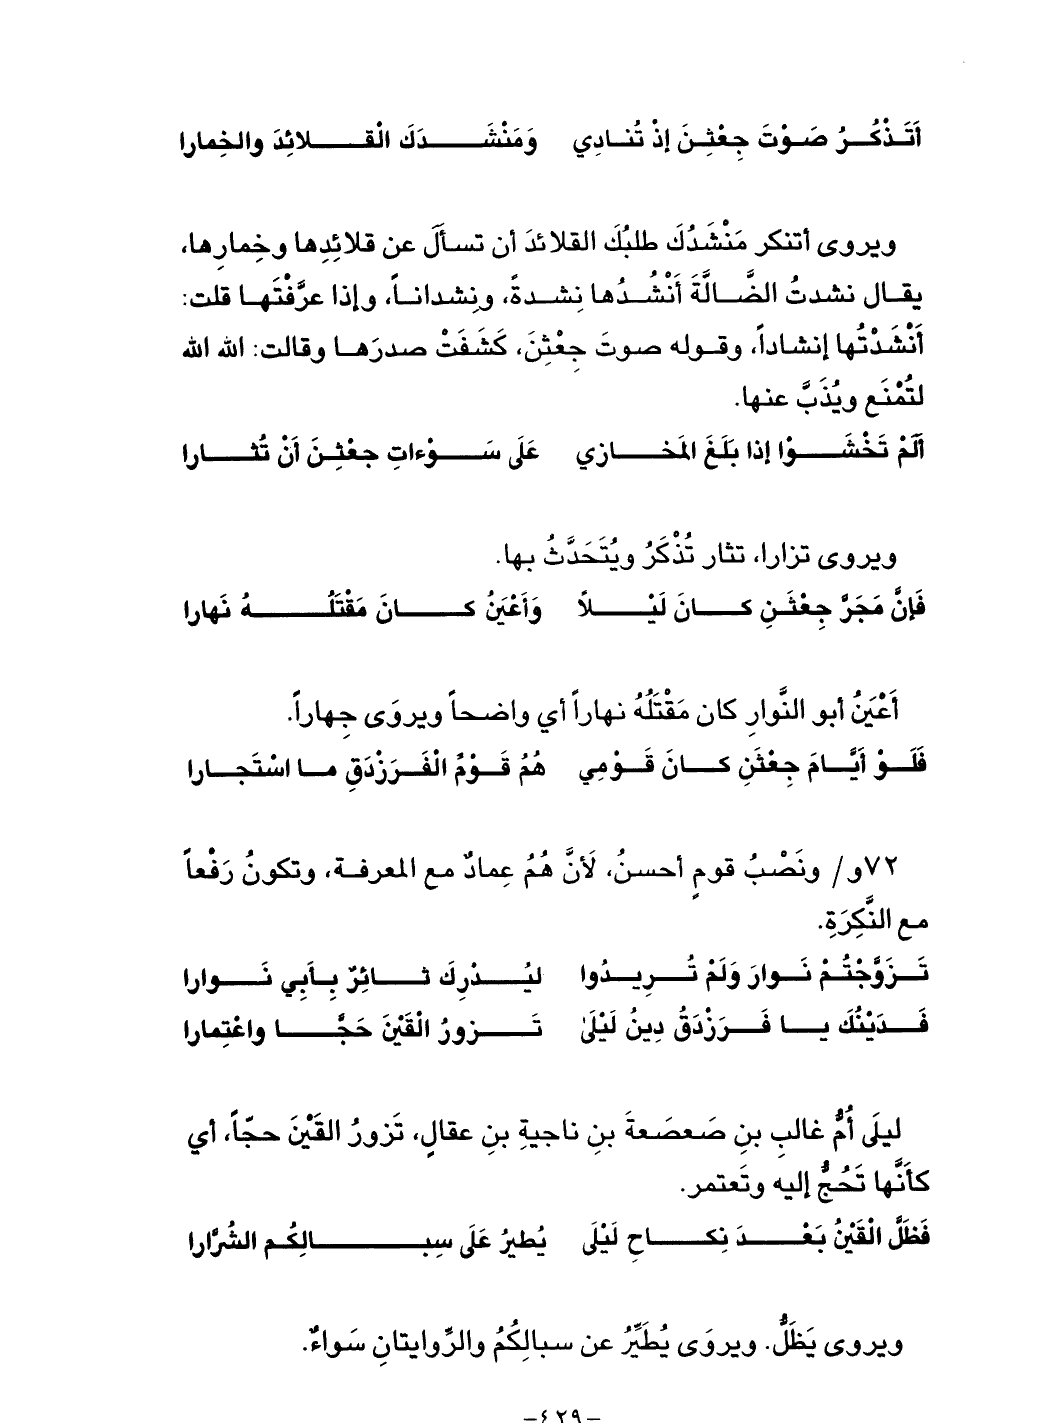 أَتَذْكُرُ صَوْتَ جِعْثِنَ إذْ تُنادِي وَمَنْشَدَكَ الْقَلائِدَ والخِمارا
ويروى أتنكر مَنْشَدُكَ طلبُكَ القلائدَ أن تسألَ عن قلائِدِها وخِمارِها،
يقال نشدتُ الضَّالَّةَ أَنْشُدُها نِشدةً، ونِشداناً، وإذا عرَّفْتَها قلت:
أَنْشَدْتُها إنشاداً، وقوله صوتَ جِعْثِنَ، كَشَفَتْ صدرَها وقالت: الله الله
لتُمْنَع ويُذَبَّ عنها.
أَلَمْ تَخْشَوْا إذا بَلَغَ المَخازي عَلَى سَوْءاتِ جعْثِنَ أَنْ تُثارا
ويروى تزارا، تثار تُذْكَرُ ويُتَحَدَّثُ بها.
فَإنَّ مَجَرَّ جِعْثَنِ كانَ لَيْلاً وَأَعْيَنُ كانَ مَقْتَلُهُ نَهارا
أَعْيَنُ أبو النَّوارِ كان مَقْتَلُهُ نهاراً أي واضحاً ويروَى جِهاراً.
فَلَوْ أَيَّامَ جِعْثَنِ كانَ قَوْمِي هُمُ قَوْمُ الْفَرَزْدَقِ ما اسْتَجارا
٧٢و/ ونَصْبُ قومٍ أحسنُ، لَأنَّ هُمُ عِمادٌ مع المعرفة، وتكونُ رَفْعاً
مع النَّكِرَةِ.
تَزَوَّجْتُمْ نَوارَ وَلَمْ تُرِيدُوا ليُدْرِكَ ثائِرٌ بِأَبِي نَوارا
فَدَيْنُكَ يا فَرَزْدَقُ دِينُ لَيْلَىٰ تَزورُ الْقَيْنَ حَجًّا واعْتِمارا
ليلَى أُمُّ غالبِ بنِ صَعصَعةَ بنِ ناجيةِ بنِ عقالٍ، تَزورُ القَيْنَ حجّاً، أي
كأنَّها تَحُجُّ إليه وتَعتمر.
فَظَلَّ الْقَيْنُ بَعْدَ نِكاحِ لَيْلَى يُطيرُ عَلَى سِبالِكُم الشُرَّارا
ويروى يَظَلُّ. ويروَى يُطَيِّرُ عن سبالِكُمُ والرِّوايتانِ سَواءٌ.
-٤٢٩-